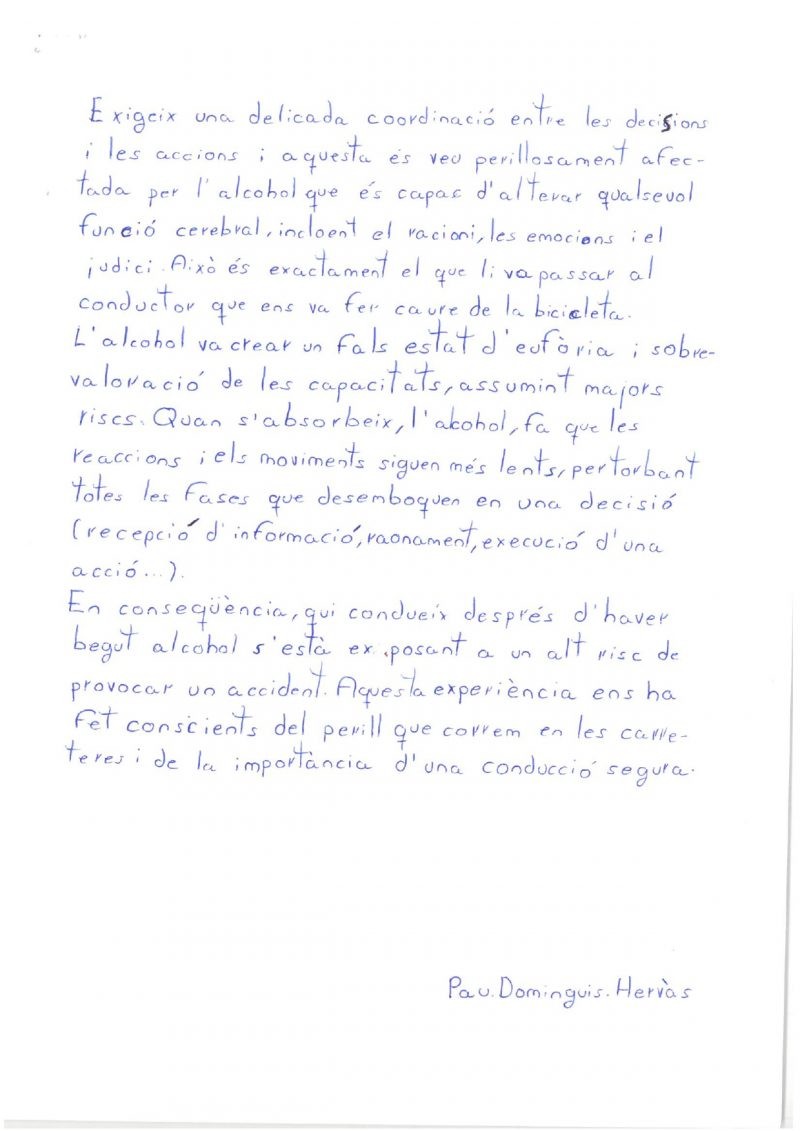 Exigeix una delicada coordinació entre les decisions
i les accions i aquesta és veu perillosament afec-
tada per l'alcohol que és capaç d'alterar qualsevol
funció cerebral, incloent el racioni, les emocions i el
judici. Això és exactament el que li va passar al
conductor que ens va fer caure de la bicicleta.
L'alcohol va crear un fals estat d'eufòria i sobre-
valoració de les capacitats, assumint majors
riscs. Quan s'absorbeix, l'alcohol, fa que les
reaccions i els moviments siguen més lents, pertorbant
totes les fases que desemboquen en una decisió
(recepció d'informació, raonament, execució d'una
acció...).
En conseqüència, qui condueix després d'haver
begut alcohol s'està exposant a un alt risc de
provocar un accident. Aquesta experiència ens ha
fet conscients del perill que correm en les carre-
teres i de la importància d'una conducció segura.
Pau. Dominguis. Hervàs